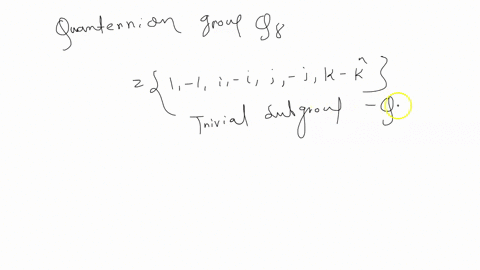 Quanternion group Q8
= {1, -1, i, -i, j, -j, k - k̂}
Trivial subgroup - Q.